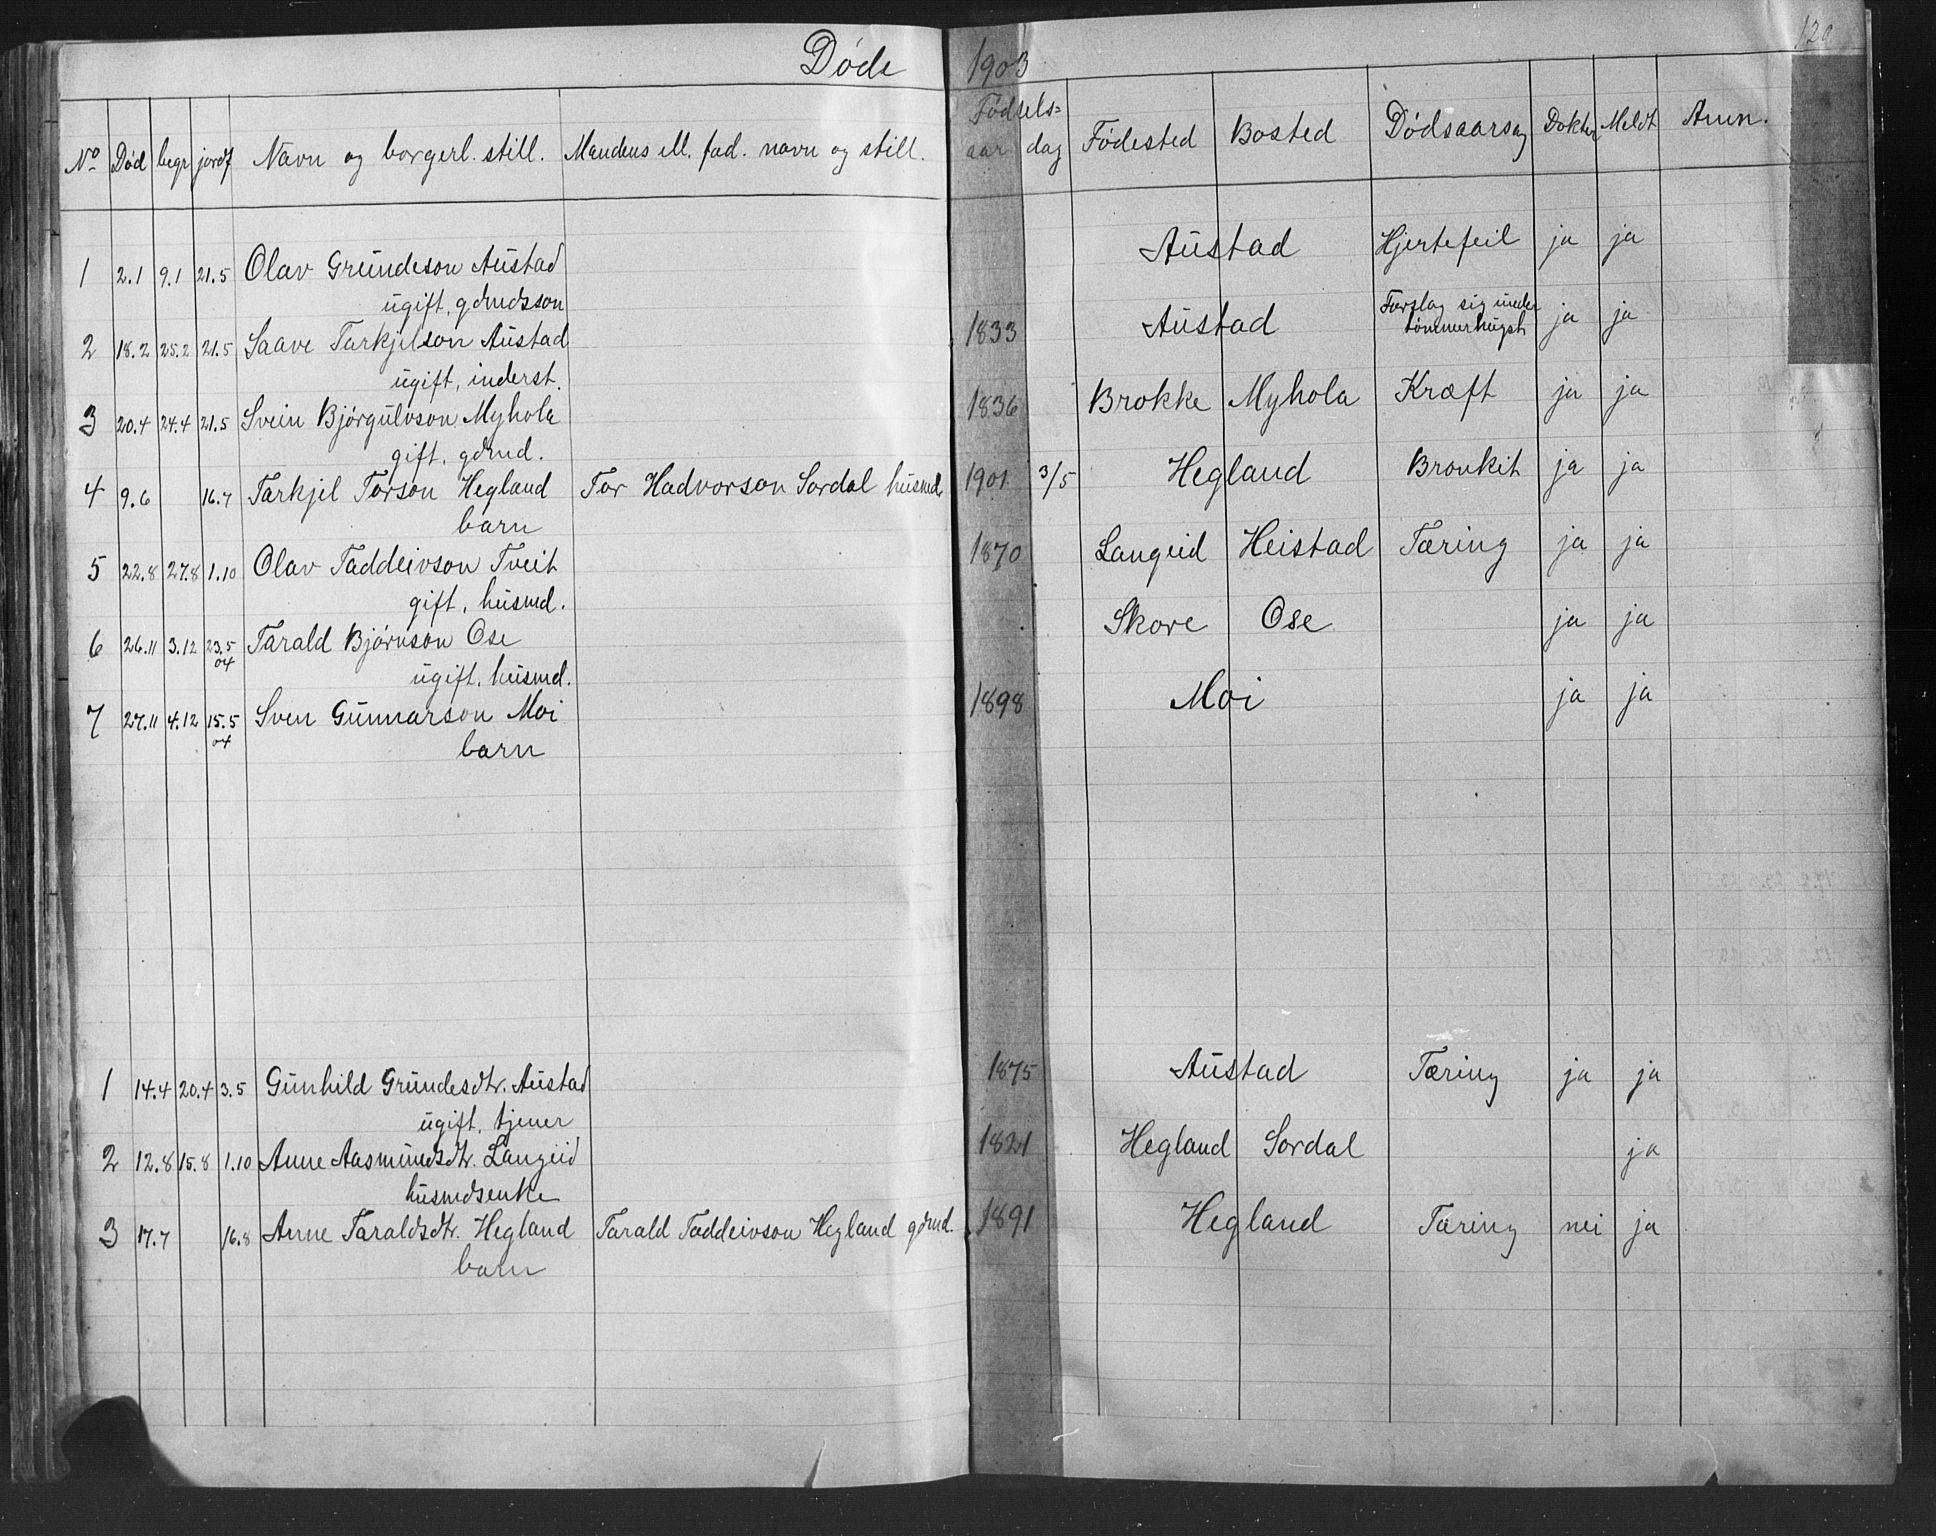 Døde 1903 120
Nº Død begr jordf Navn og borgerl. still. Mandens ell. fad. navn og still. Fødsels= aar dag Fødested Bosted Dødsaarsag Dokter Meldt Anm.
1 2.1 9.1 21.5 Olav Grundeson Austad Austad Hjertefeil ja ja
ugift, gdmdsson
2 18.2 25.2 21.5 Saave Tarkjelson Austad 1833 Austad Forslog sig under tømmerhugst ja ja
ugift, inderst.
3 20.4 24.4 21.5 Svein Bjørgulvson Myhola 1836 Brokke Myhola Kræft ja ja
gift, gdmd.
4 9.6 16.7 Tarkjel Torson Hegland Tor Hadvorson Sordal husmd. 1901 3/5 Hegland Bronkit ja ja
barn
5 22.8 27.8 1.10 Olav Taddeivson Tveit 1870 Langeid Heistad Tæring ja ja
gift, husmd.
6 26.11 3.12 23.5 04 Tarald Bjørnson Ose Skore Ose ja ja
ugift, husmd.
7 27.11 4.12 15.5 04 Sven Gunnarson Moi 1898 Moi ja ja
barn
1 14.4 20.4 3.5 Gunhild Grundesdtr. Austad 1875 Austad Tæring ja ja
ugift, tjener
2 12.8 15.8 1.10 Anne Aasmundsdtr. Langeid 1821 Hegland Sordal ja
husmdsenke
3 17.7 16.8 Anne Taraldsdtr. Hegland Tarald Taddeivson Hegland gdmd. 1891 Hegland Tæring nei ja
barn